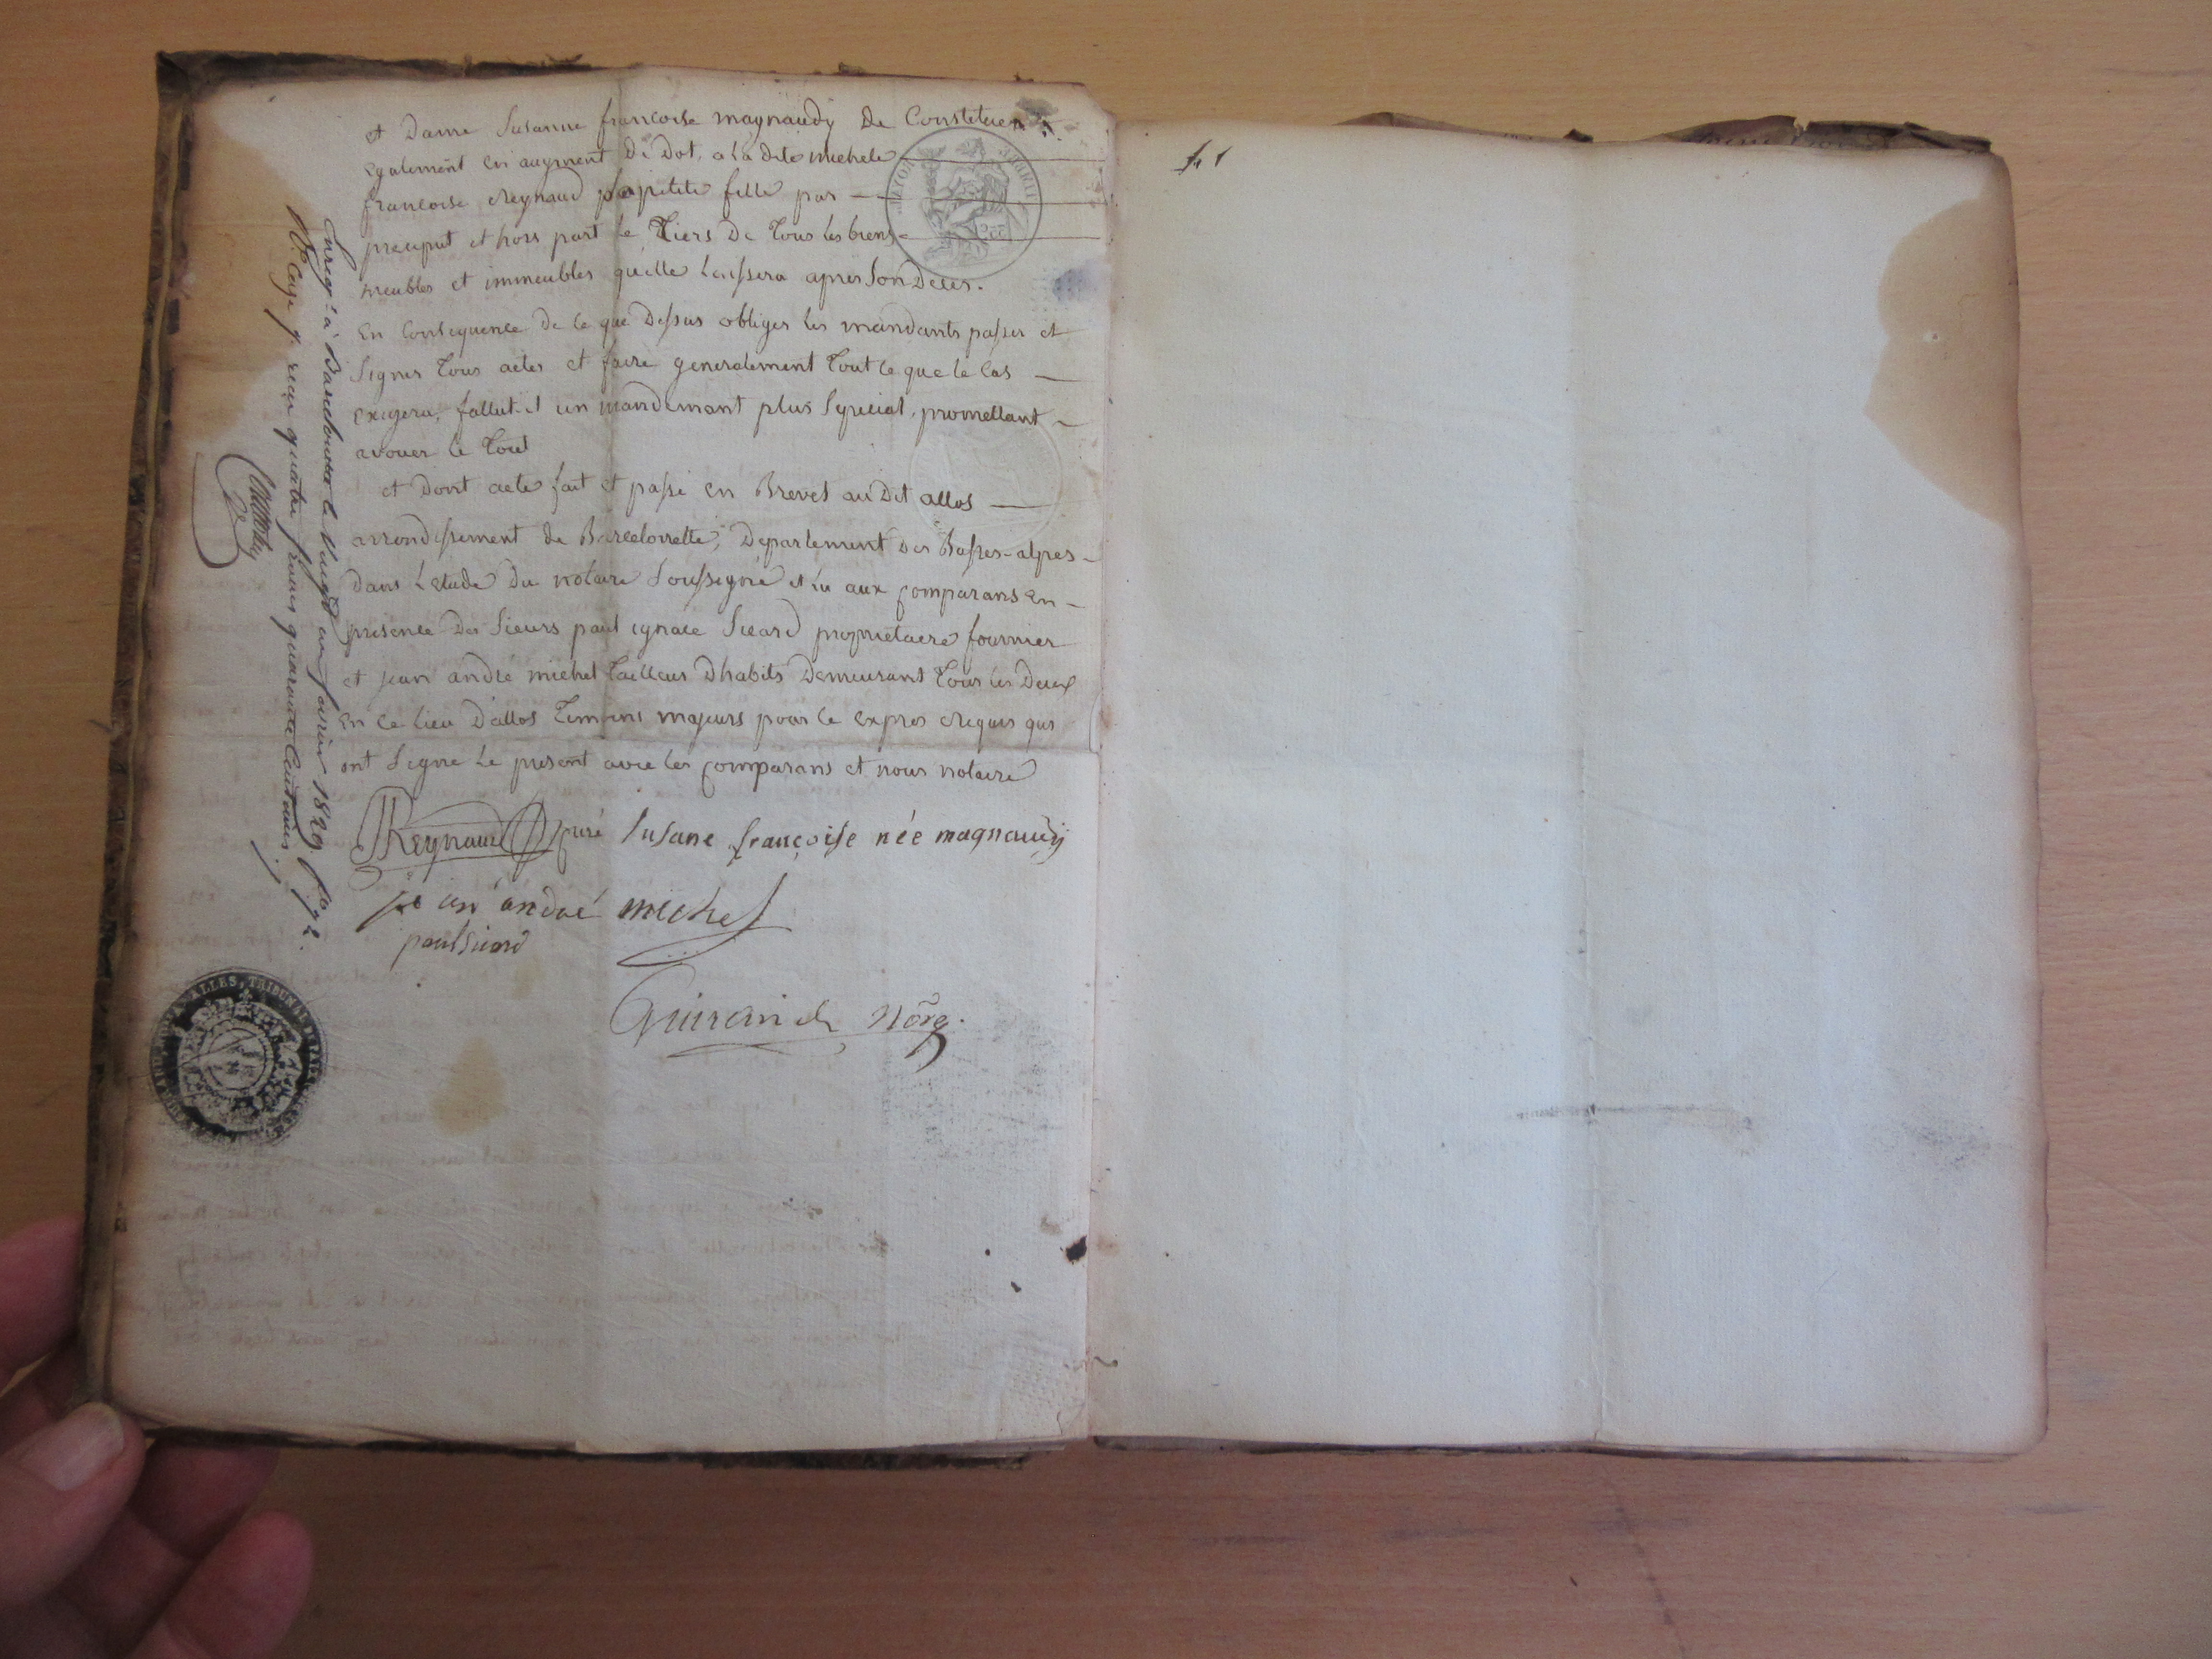 et Dame Susanne francoise magnaudy de Constituer
egalement en augment de Dot, a la dite michele
francoise Reynaud sa petite fille par —
preciput et hors part le Tiers de Tous les biens
meubles et immeubles qu'elle laissera apres son Deces.
En Consequence de ce que Dessus obliger les mandants passer et
Signer Tous actes et faire generalement Tout ce que le Cas —
exigera, fallut-il un mandemant plus Special, promettant —
avouer le Tout
et Dont acte fait et passé en Brevet au Dit allos —
arrondissement de Barcelonette, Departement Des Basses-alpes —
dans L'etude Du notaire Soussigné et Lu aux comparans en —
presence Des Sieurs paul ignace Sicard proprietaire fournier
et jean andré michel Tailleur D'habits Demeurant Tous les Deux
en ce lieu D'allos Temoins majeurs pour ce expres Requis qui
ont Signé Le present avec les comparans et nous notaire
Reynaud curé Susane françoise née magnaudy
jean andré michel
paul Sicard
Guirand Nore.
Enreg.é à Barcelonnette le Vingt un fevrier 1829 f.o
reçu quatre francs quarante Centimes
f. 1